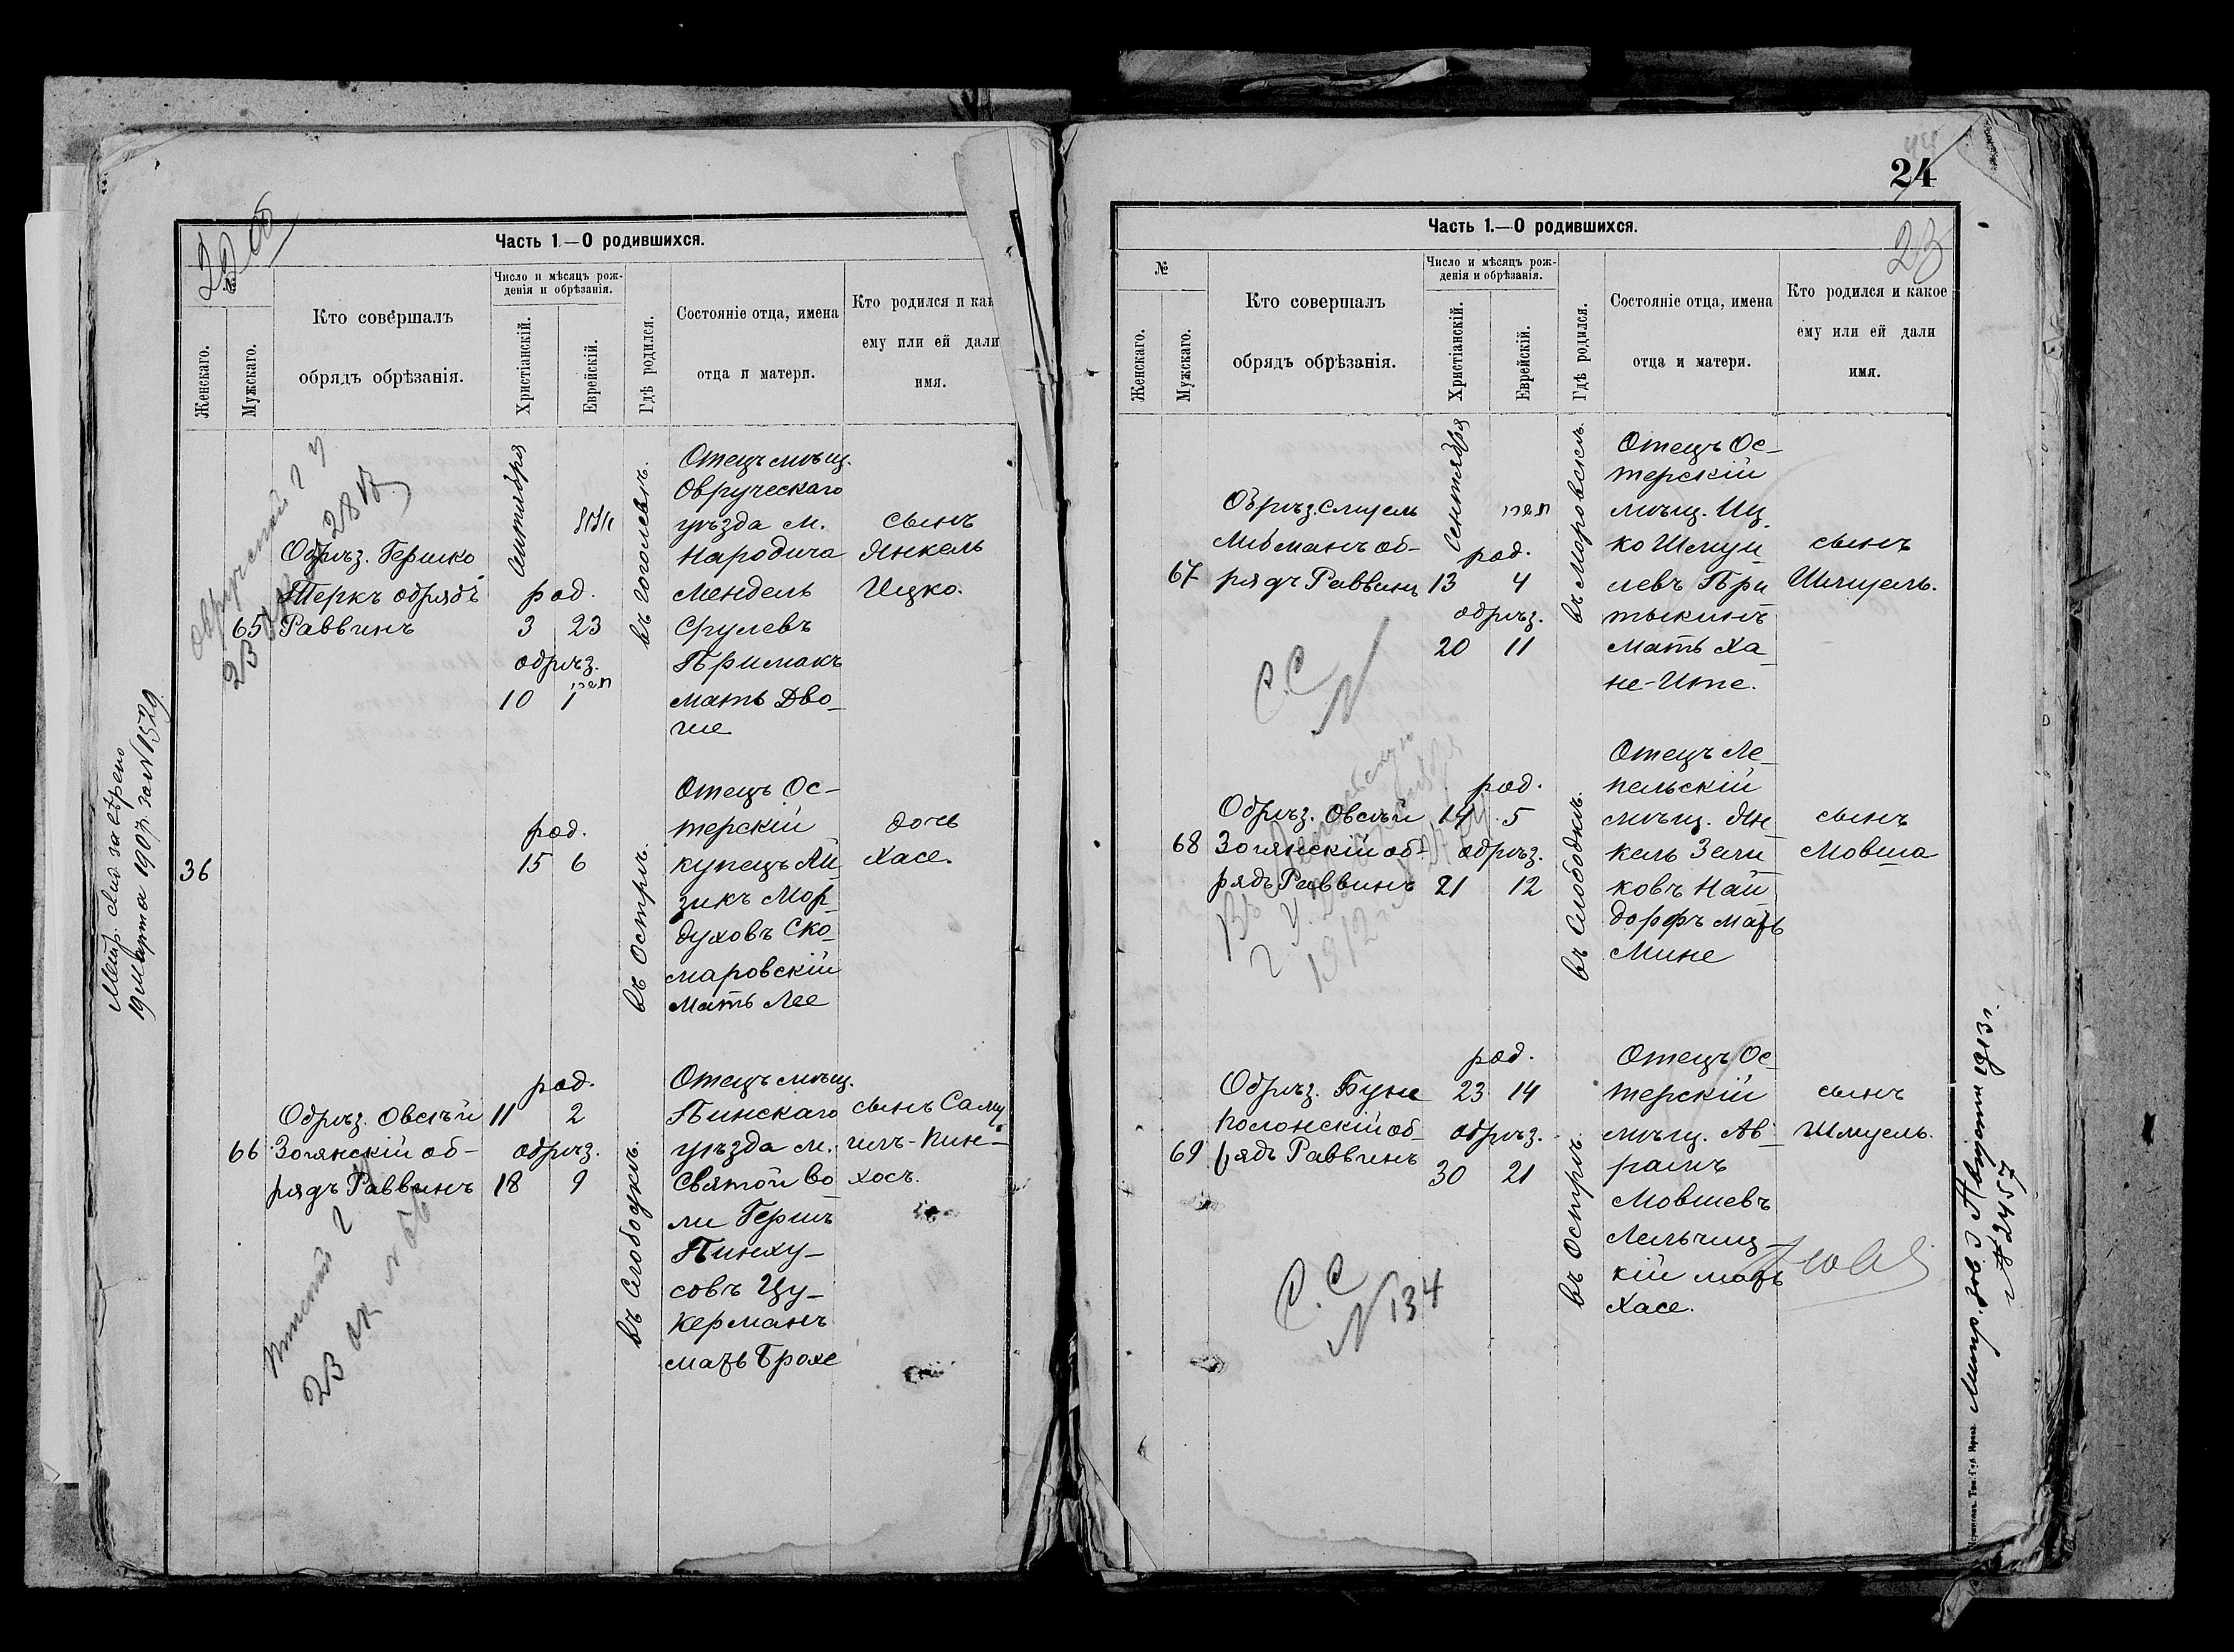 22 об
Часть 1.—О родившихся.
№
Женскаго.
Мужскаго.
Кто совершалъ
обрядъ обрѣзанія.
Число и мѣсяцъ рож-
денія и обрѣзанія.
Христіанскій.
Еврейскій.
Гдѣ родился.
Состояніе отца, имена
отца и матери.
Кто родился и как
ему или ей дали
имя.
65
Обрѣз. Гершко
Теркъ обрядъ
Раввинъ
Сентября
אלול
род.
3 23
обрѣз.
10 1
תשרי
въ Гоголевѣ.
Отецъ мѣщ.
Овруческаго
уѣзда м.
Народича
Мендель
Срулевъ
Примакъ
мать Дво-
ше
сынъ
Янкель
Ицко.
36
род.
15 6
въ Острѣ.
Отецъ Ос-
терскій
купецъ Ай
зикъ Мор-
духовъ Ско-
маровскій
мать Лее
дочь
Хасе.
66
Обрѣз. Овсѣй
Золянскій об-
рядъ Раввинъ
род.
11 2
обрѣз.
18 9
въ Слободкѣ.
Отецъ мѣщ.
Пинскаго
уѣзда м.
Святой Во
ли Гершъ
Пинху-
совъ Цу-
керманъ
мать Брохе
сынъ Саму
илъ-Пин-
хосъ.
Метр. свид. завѣрено
19 Марта 1907 г. за № 1529.
24
23
Часть 1.—О родившихся.
№
Женскаго.
Мужскаго.
Кто совершалъ
обрядъ обрѣзанія.
Число и мѣсяцъ рож-
денія и обрѣзанія.
Христіанскій.
Еврейскій.
Гдѣ родился.
Состояніе отца, имена
отца и матери.
Кто родился и какое
ему или ей дали
имя.
67
Обрѣз. Смуель
Либманъ об-
рядъ Раввинъ
Сентября
תשרי
род.
13 4
обрѣз.
20 11
въ Моровскѣ.
Отецъ Ос-
терскій
мѣщ. Иц
ко Шмуй
левъ При
тыкинъ
мать Ха-
не-Ите.
сынъ
Шмуель.
С.С
№
68
Обрѣз. Овсѣй
Золянскій об-
рядъ Раввинъ
род.
14 5
обрѣз.
21 12
въ Слободкѣ.
Отецъ Ле-
пельскій
мѣщ. Ян
кель Зели
ковъ Най
дорфъ мать
Мине
сынъ
Мовша
1912
69
Обрѣз. Буне
Полонскій об-
рядъ Раввинъ
род.
23 14
обрѣз.
30 21
въ Острѣ.
Отецъ Ос-
терскій
мѣщ. Ав-
рамъ
Мовшевъ
Лельчиц-
кій мать
Хасе.
сынъ
Шмуель.
С.С
№ 134
1913 г.
№ 2457